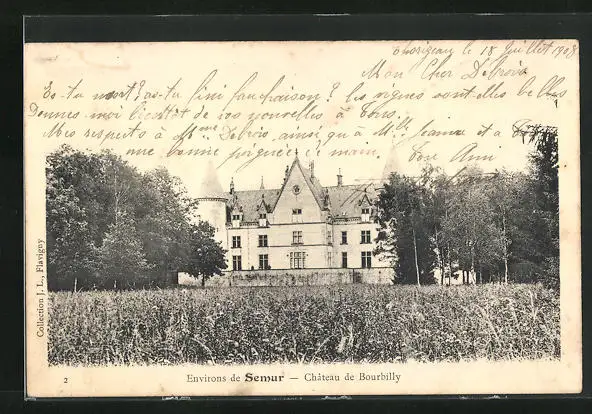 Thorigeau le 18 Juillet 1908
Mon Cher Debrois
Es-tu mort? as-tu fini fauchaison? les vignes sont-elles belles
Donnes moi bientôt de vos nouvelles à Tous.
Mes respects à Mme Debrois ainsi qu'à Mlle Jeanne et a
une bonne poignée de main. Ton Ami
Collection J. L., Flavigny
2
Environs de Semur — Château de Bourbilly